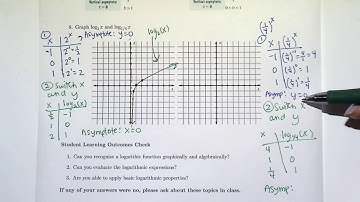 Vertical asymptote:
Vertical asymptote:
x = 0
b > 1
x = 0
0 < b < 1
8. Graph log₂ x and log₁/₄ x
①
x | 2ˣ
-1 | 2⁻¹ = 1/2
0 | 2⁰ = 1
1 | 2¹ = 2
Asymptote: y=0
② Switch x
and y
x | log₂(x)
1/2 | -1
1 | 0
2 | 1
log₂(x)
Asymptote: x=0
① (1/4)ˣ
x | (1/4)ˣ
0 | (1/4)⁰ = 1
1 | (1/4)¹ = 1/4
Asymp: y=0
② Switch x
and y
x | log₁/₄(x)
4 | -1
1 | 0
Asymp:
Student Learning Outcomes Check
1. Can you recognize a logarithmic function graphically and algebraically?
2. Can you evaluate the logarithmic expressions?
3. Are you able to apply basic logarithmic properties?
If any of your answers were no, please ask about these topics in class.